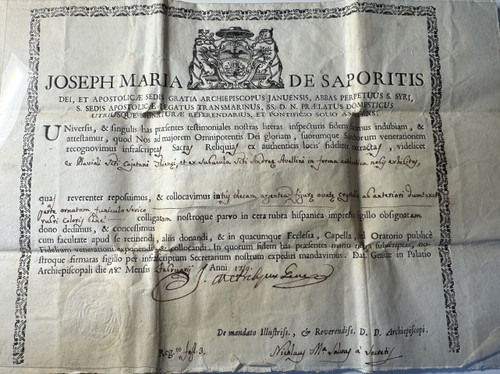 JOSEPH MARIA DE SAPORITIS
DEI, ET APOSTOLICÆ SEDIS GRATIA ARCHIEPISCOPUS JANUENSIS, ABBAS PERPETUUS S. SYRI,
S. SEDIS APOSTOLICÆ LEGATUS TRANSMARINUS, SS. D. N. PRÆLATUS DOMESTICUS
UTRIUSQUE SIGNATURÆ REFERENDARIUS, ET PONTIFICIO SOLIO ASSISTENS:
Universis, & singulis has præsentes testimoniales nostras literas inspecturis fidem facimus indubiam, &
attestamur, quod Nos ad majorem Omnipotentis Dei gloriam, suorumque Sanctorum venerationem
recognovimus infrascriptas Sacras Reliquias ex authenticis locis fideliter extractas, videlicet
ex Sti Cajetani Thienei, et ex Sti Andreæ Avellini in forma
quas reverenter reposuimus, & collocavimus in argenteam figuræ ab anteriori
parte ornatam funiculo serico
rubri coloris colligatam nostroque parvo in cera rubra hispanica impresso sigillo obsignatam
dono dedimus, & concessimus
cum facultate apud se retinendi, aliis donandi, & in quacumque Ecclesia, Capella, aut Oratorio publicè
Fidelium venerationi exponendi, & collocandi. In quorum fidem has præsentes manu nostra subscriptas, no-
stroque firmatas sigillo per infrascriptum Secretarium nostrum expediri mandavimus. Dat. Genuæ in Palatio
Archiepiscopali die Mensis Februarii Anni
De mandato Illustriss., & Reverendiss. D. D. Archiepiscopi.
Reg. fol. 3. Nicolaus Mª à Secretis